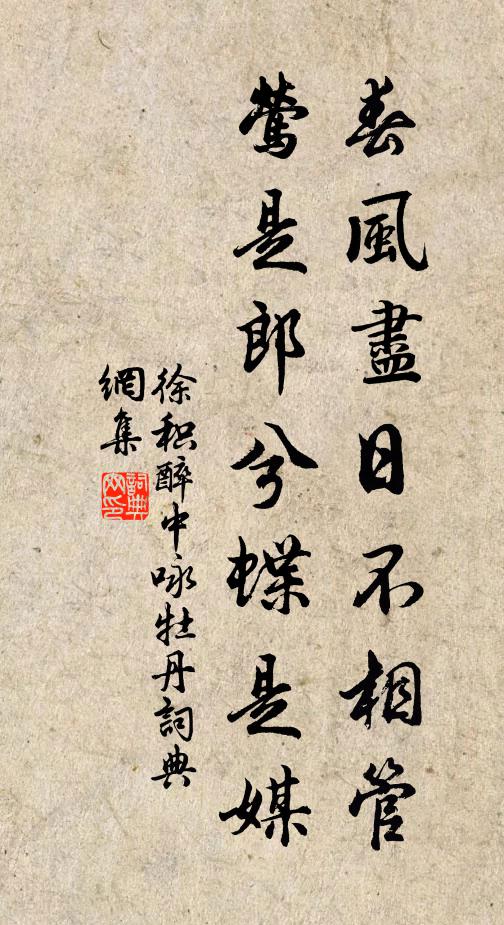 春風盡日不相管
鶯是郎兮蝶是媒
徐积醉中咏牡丹詞典
網集
詞典
网印